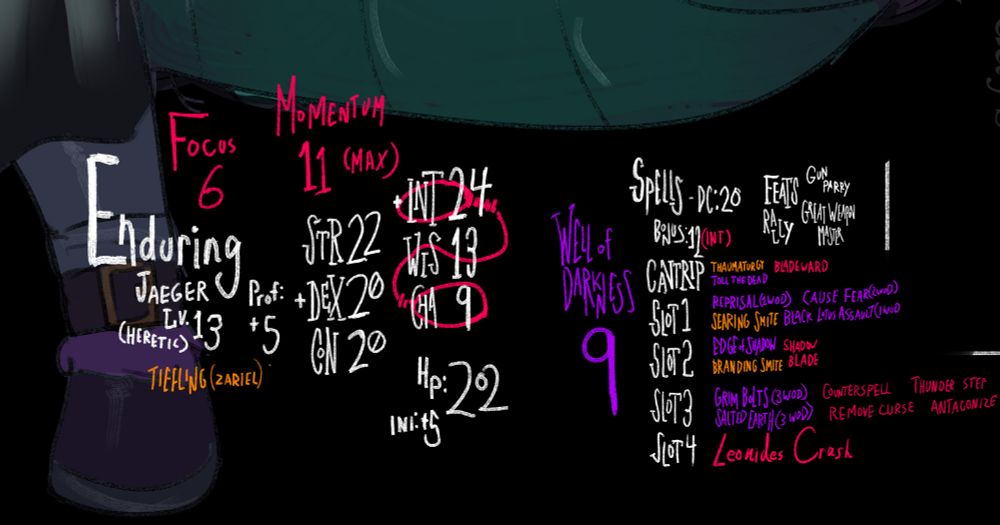 Focus
6
Momentum
11 (MAX)
Enduring
JAEGER
LV. 13
(HERETIC)
TIEFLING (ZARIEL)
Prof:
+5
STR 22
+DEX 20
CON 20
+INT 24
WIS 13
CHA 9
Hp: 202
INI:+5
WELL of
DARKNESS
9
SPELLS - DC:20
BONUS:12 (INT)
FEATS
GUN
PARRY
RALLY
GREAT WEAPON
MASTER
CANTRIP
THAUMATURGY BLADEWARD
TOLL THE DEAD
SLOT 1
REPRISAL (2WOD) CAUSE FEAR (2WOD)
SEARING SMITE BLACK LOTUS ASSAULT (1WOD
SLOT 2
EDGE of SHADOW SHADOW
BLADE
BRANDING SMITE
SLOT 3
GRIM BOLTS (3WOD) COUNTERSPELL THUNDER STEP
SALTED EARTH (3WOD) REMOVE CURSE ANTAGONIZE
SLOT 4
Leonides Crash